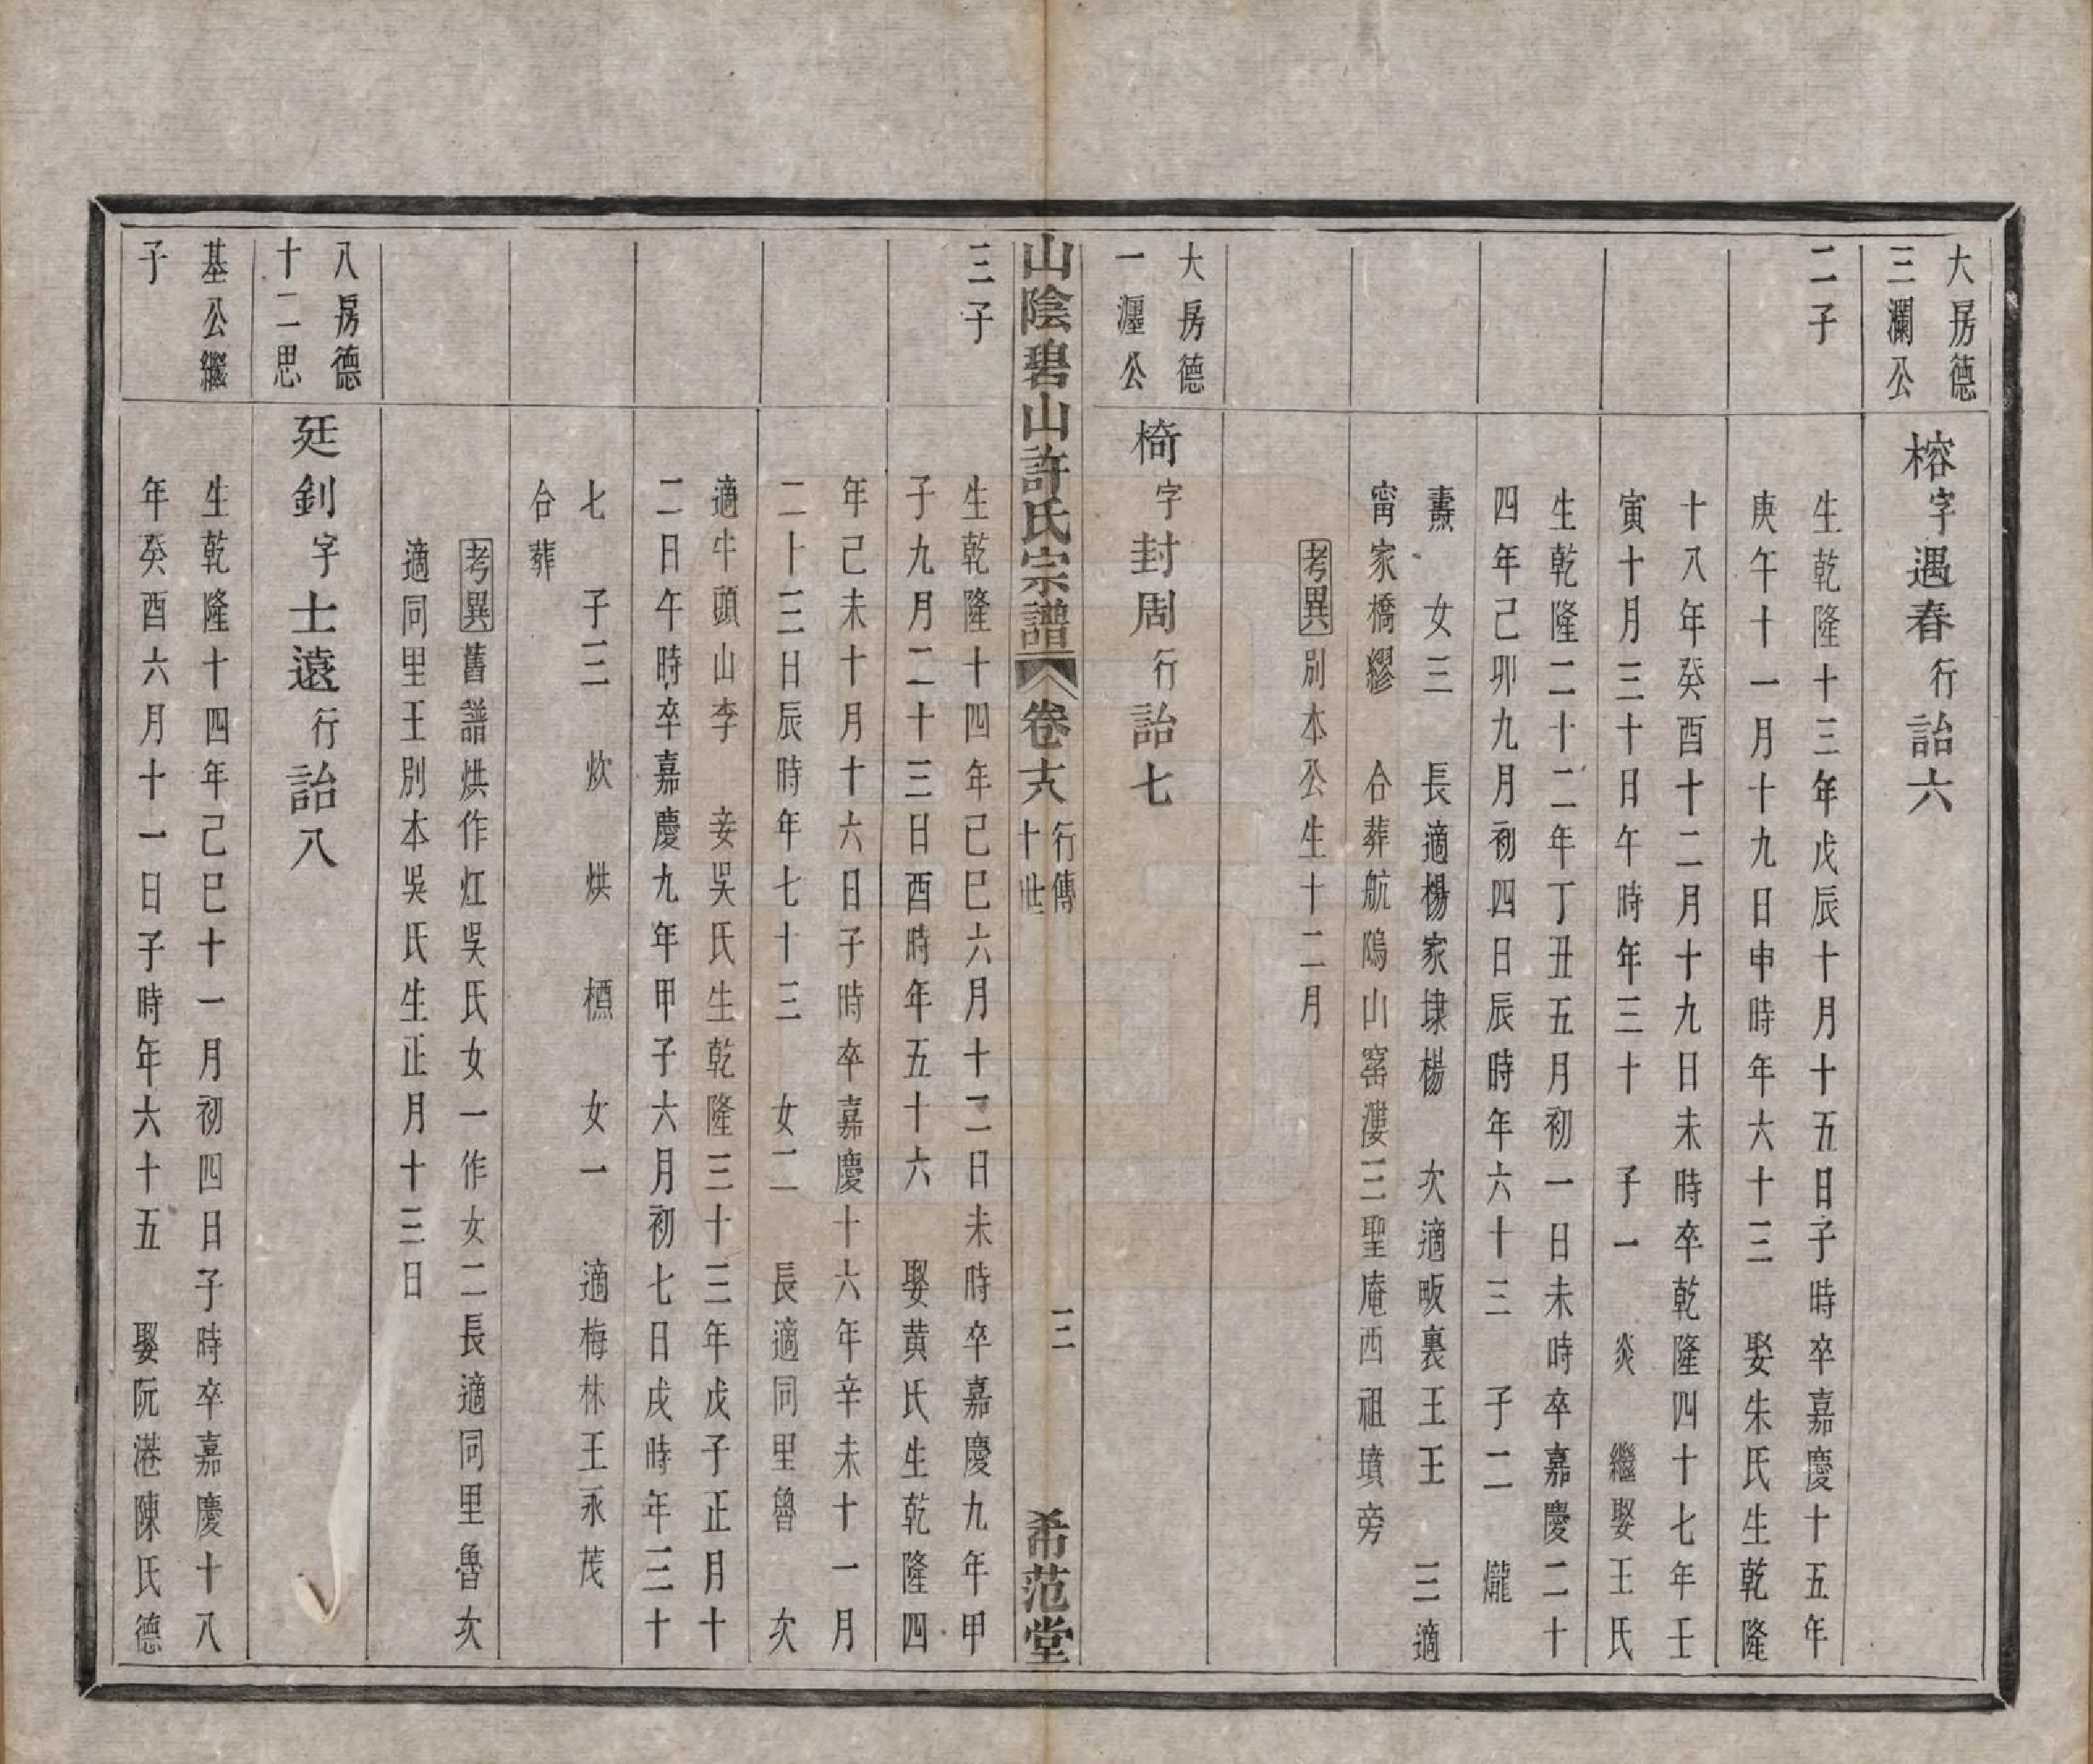 大房德
三瀾公
二子
榕字遇春行詒六
生乾隆十三年戊辰十月十五日子時卒嘉慶十五年
庚午十一月十九日申時年六十三　娶朱氏生乾隆
十八年癸酉十二月十九日未時卒乾隆四十七年壬
寅十月三十日午時年三十　子一　炎　繼娶王氏
生乾隆二十二年丁丑五月初一日未時卒嘉慶二十
四年己卯九月初四日辰時年六十三　子二　爖
燾　女三　長適楊家埭楊　次適畈裏王王　三適
甯家橋繆　合葬航隖山窰漊三聖庵西祖墳旁
考異別本公生十二月
大房德
一漄公
三子
椅字封周行詒七
山陰碧山許氏宗譜
卷十八
行傳
十世
三
希范堂
生乾隆十四年己巳六月十二日未時卒嘉慶九年甲
子九月二十三日酉時年五十六　娶黄氏生乾隆四
年己未十月十六日子時卒嘉慶十六年辛未十一月
二十三日辰時年七十三　女二　長適同里魯　次
適牛頭山李　妾吳氏生乾隆三十三年戊子正月十
二日午時卒嘉慶九年甲子六月初七日戌時年三十
七　子三　炊　烘　標　女一　適梅林王永茂
合葬
考異舊譜烘作灴吳氏女一作女二長適同里魯次
適同里王別本吳氏生正月十三日
八房德
十二思
基公繼
子
廷釗字士遠行詒八
生乾隆十四年己巳十一月初四日子時卒嘉慶十八
年癸酉六月十一日子時年六十五　娶阮港陳氏德